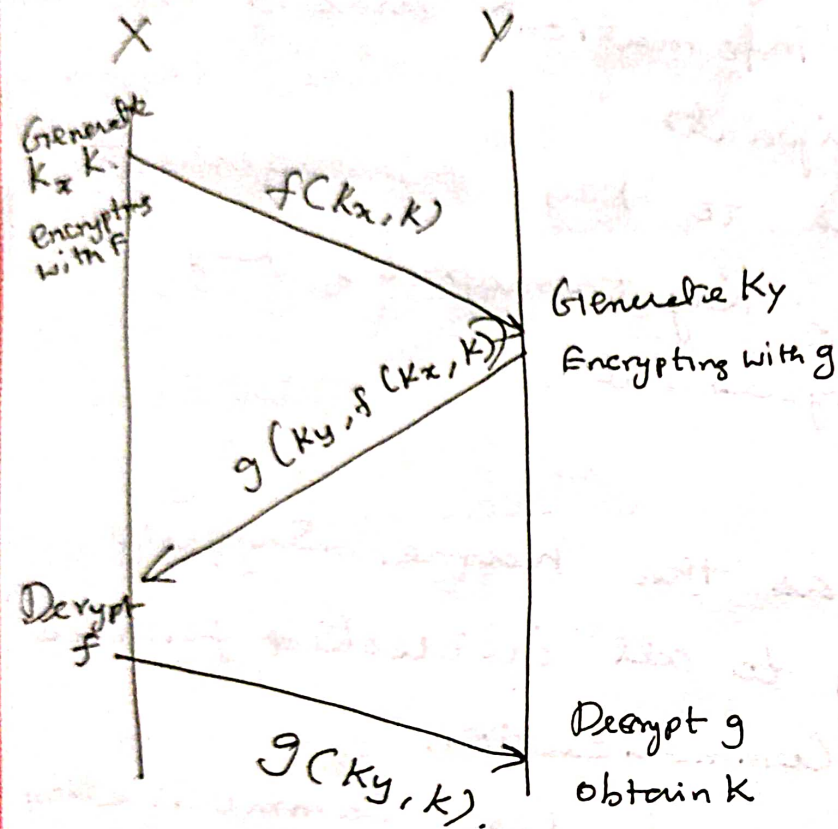 X
Y
Generate
Kx K.
encrypting
with F
f(Kx, K)
Generate Ky
Encrypting with g
g(Ky, f(Kx, K))
Decrypt
f
g(Ky, K).
Decrypt g
obtain K